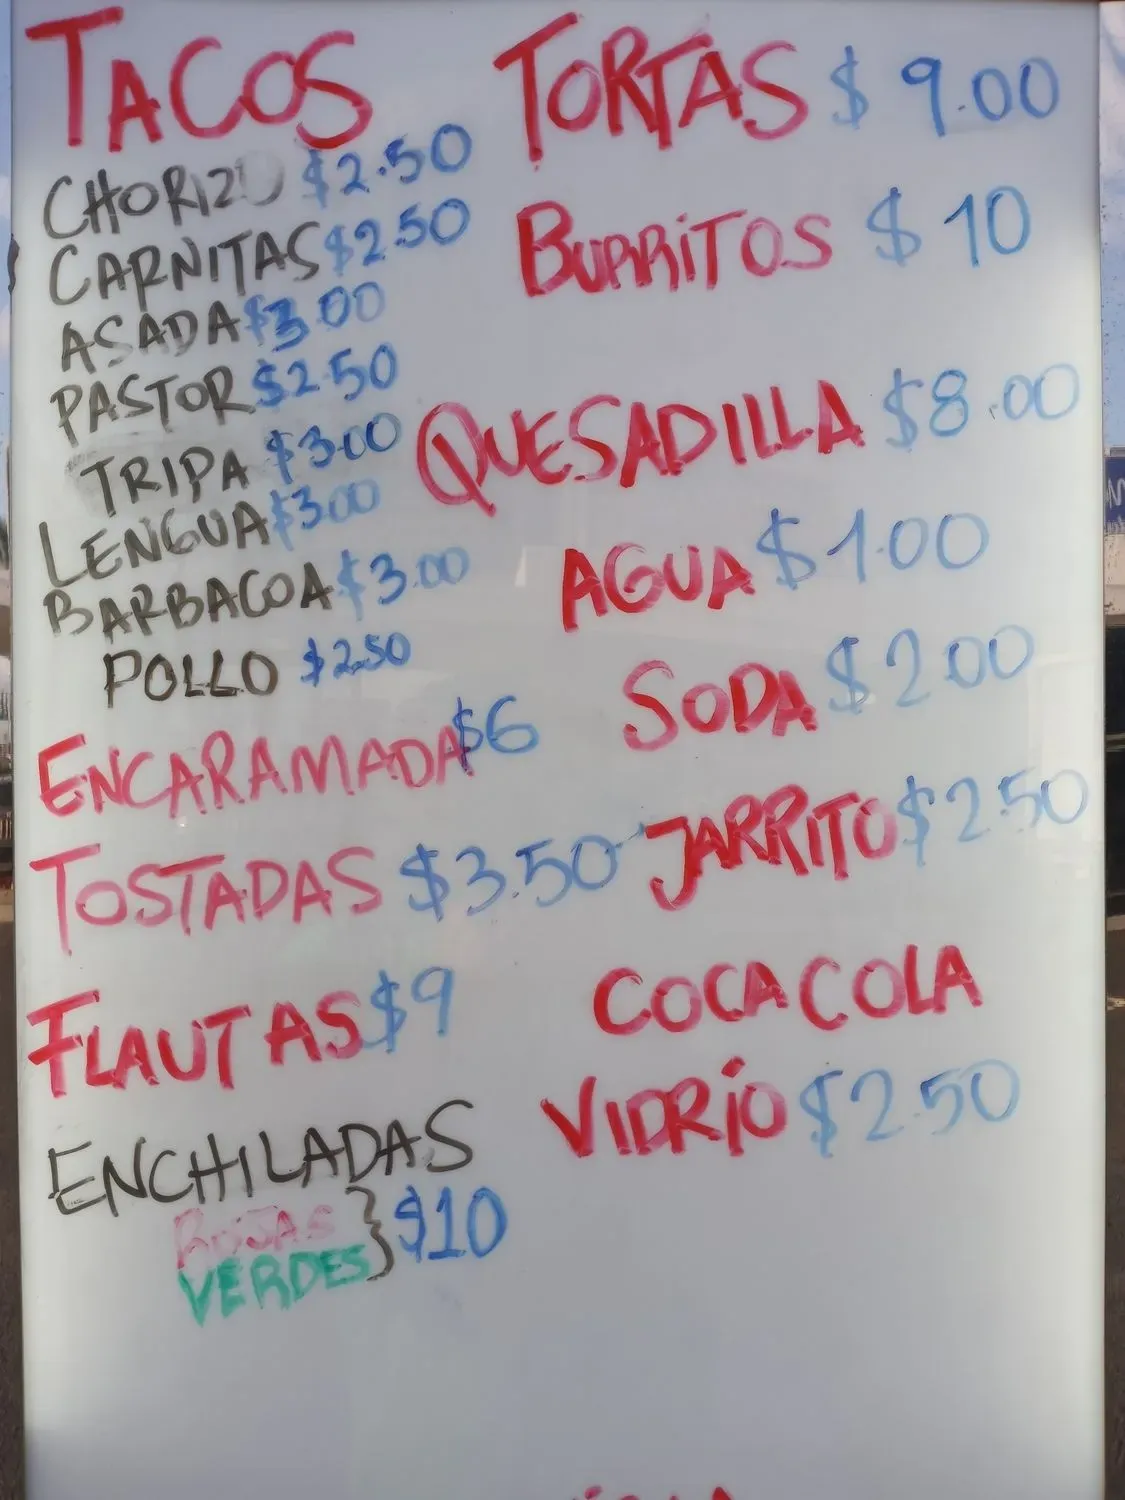 TACOS
CHORIZO $2.50
CARNITAS $2.50
ASADA $3.00
PASTOR $2.50
TRIPA $3.00
LENGUA $3.00
BARBACOA $3.00
POLLO $2.50
ENCARAMADA $6
TOSTADAS $3.50
FLAUTAS $9
ENCHILADAS
ROJAS
VERDES } $10
TORTAS $9.00
BURRITOS $10
QUESADILLA $8.00
AGUA $1.00
SODA $2.00
JARRITO $2.50
COCA COLA
VIDRÍO $2.50